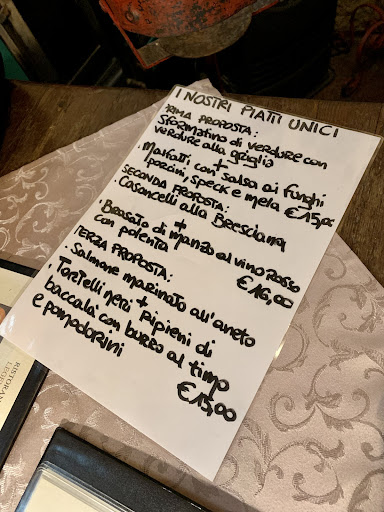 I NOSTRI PIATTI UNICI
PRIMA PROPOSTA:
Sformatino di verdure con
verdure alla griglia
+
• Malfatti con salsa ai funghi
porcini, speck e mela €15,00
SECONDA PROPOSTA:
• Casoncelli alla Bresciana
+
• Brasato di manzo al vino rosso
con polenta
€16,00
TERZA PROPOSTA:
• Salmone marinato all'aneto
+
• Tortelli neri ripieni di
baccalà con burro al timo
e pomodorini
€15,00
RISTORAN